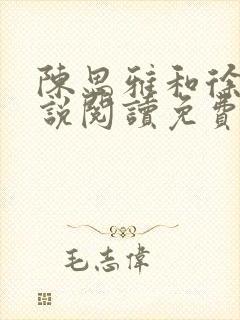 陳思雅和徐
說閱讀免費
毛志偉